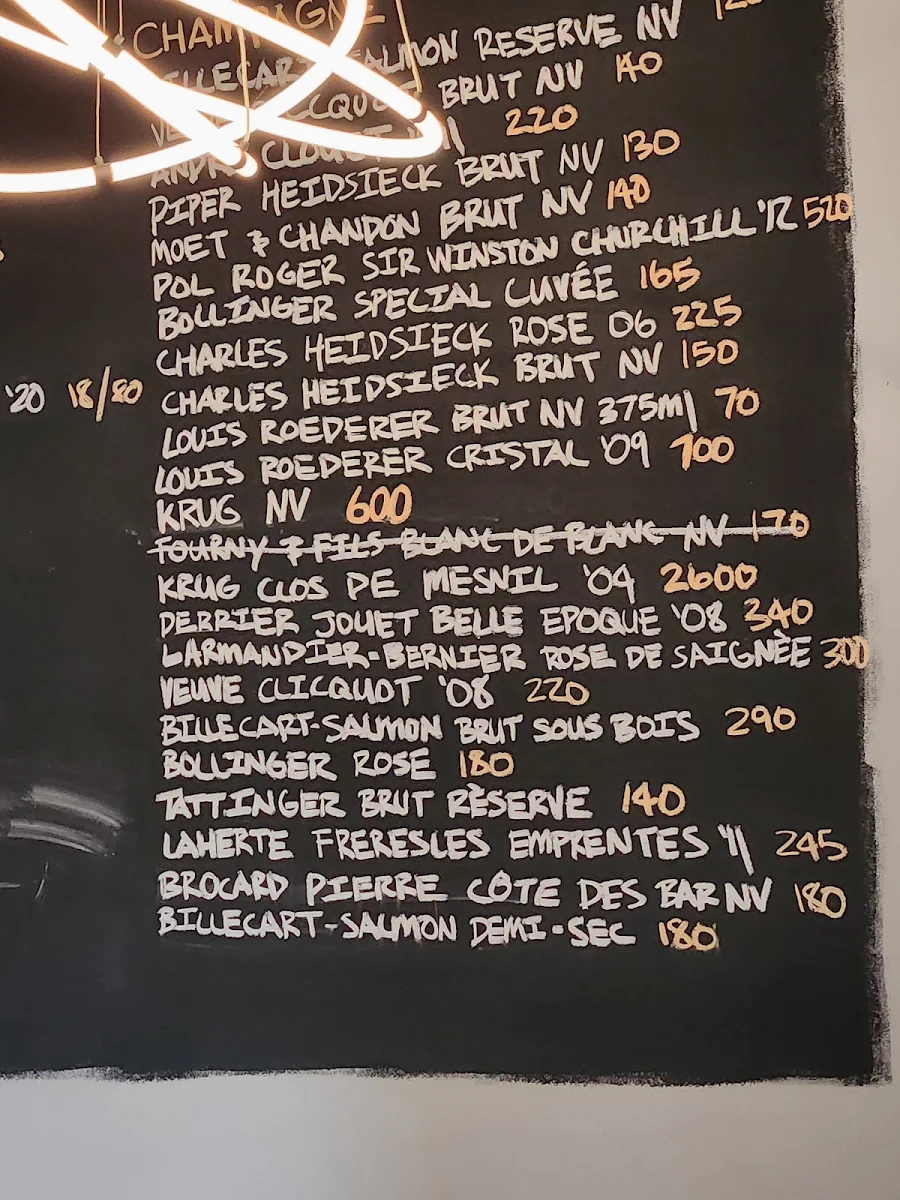 CHAMPAGNE
BILLECART-SALMON RESERVE NV
VEUVE CLICQUOT BRUT NV 140
ANDRE CLOUET '11 220
PIPER HEIDSIECK BRUT NV 130
MOET & CHANDON BRUT NV 140
POL ROGER SIR WINSTON CHURCHILL '12 520
BOLLINGER SPECIAL CUVÉE 165
CHARLES HEIDSIECK ROSE 06 225
CHARLES HEIDSIECK BRUT NV 150
'20 18/80
LOUIS ROEDERER BRUT NV 375ml 70
LOUIS ROEDERER CRISTAL '09 700
KRUG NV 600
FOURNY & FILS BLANC DE BLANC NV 170
KRUG CLOS DE MESNIL '04 2600
PERRIER JOUET BELLE EPOQUE '08 340
LARMANDIER-BERNIER ROSE DE SAIGNÈE 300
VEUVE CLICQUOT '08 220
BILLECART-SALMON BRUT SOUS BOIS 290
BOLLINGER ROSE 180
TATTINGER BRUT RÈSERVE 140
LAHERTE FRERES LES EMPRENTES '11 245
BROCARD PIERRE CÔTE DES BAR NV 180
BILLECART-SALMON DEMI-SEC 180